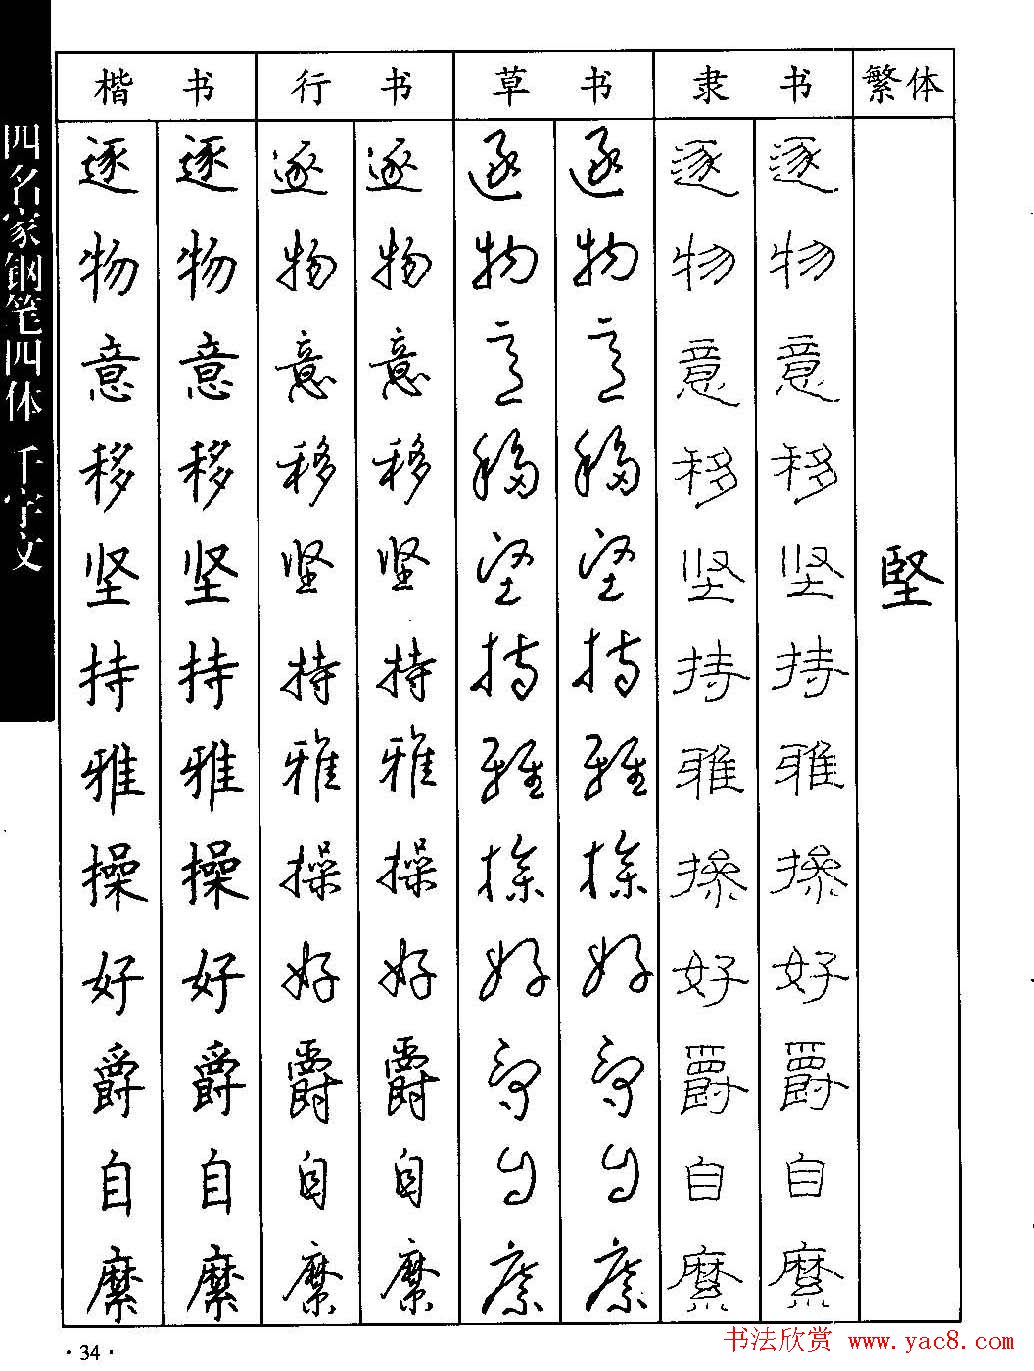 四名家钢笔四体 千字文
楷书 行书 草书 隶书 繁体
逐 逐 逐 逐 逐 逐 逐 逐
物 物 物 物 物 物 物 物
意 意 意 意 意 意 意 意
移 移 移 移 移 移 移 移
坚 坚 坚 坚 坚 坚 坚 坚 堅
持 持 持 持 持 持 持 持
雅 雅 雅 雅 雅 雅 雅 雅
操 操 操 操 操 操 操 操
好 好 好 好 好 好 好 好
爵 爵 爵 爵 爵 爵 爵 爵
自 自 自 自 自 自 自 自
縻 縻 縻 縻 縻 縻 縻 縻
·34·
书法欣赏 www.yac8.com